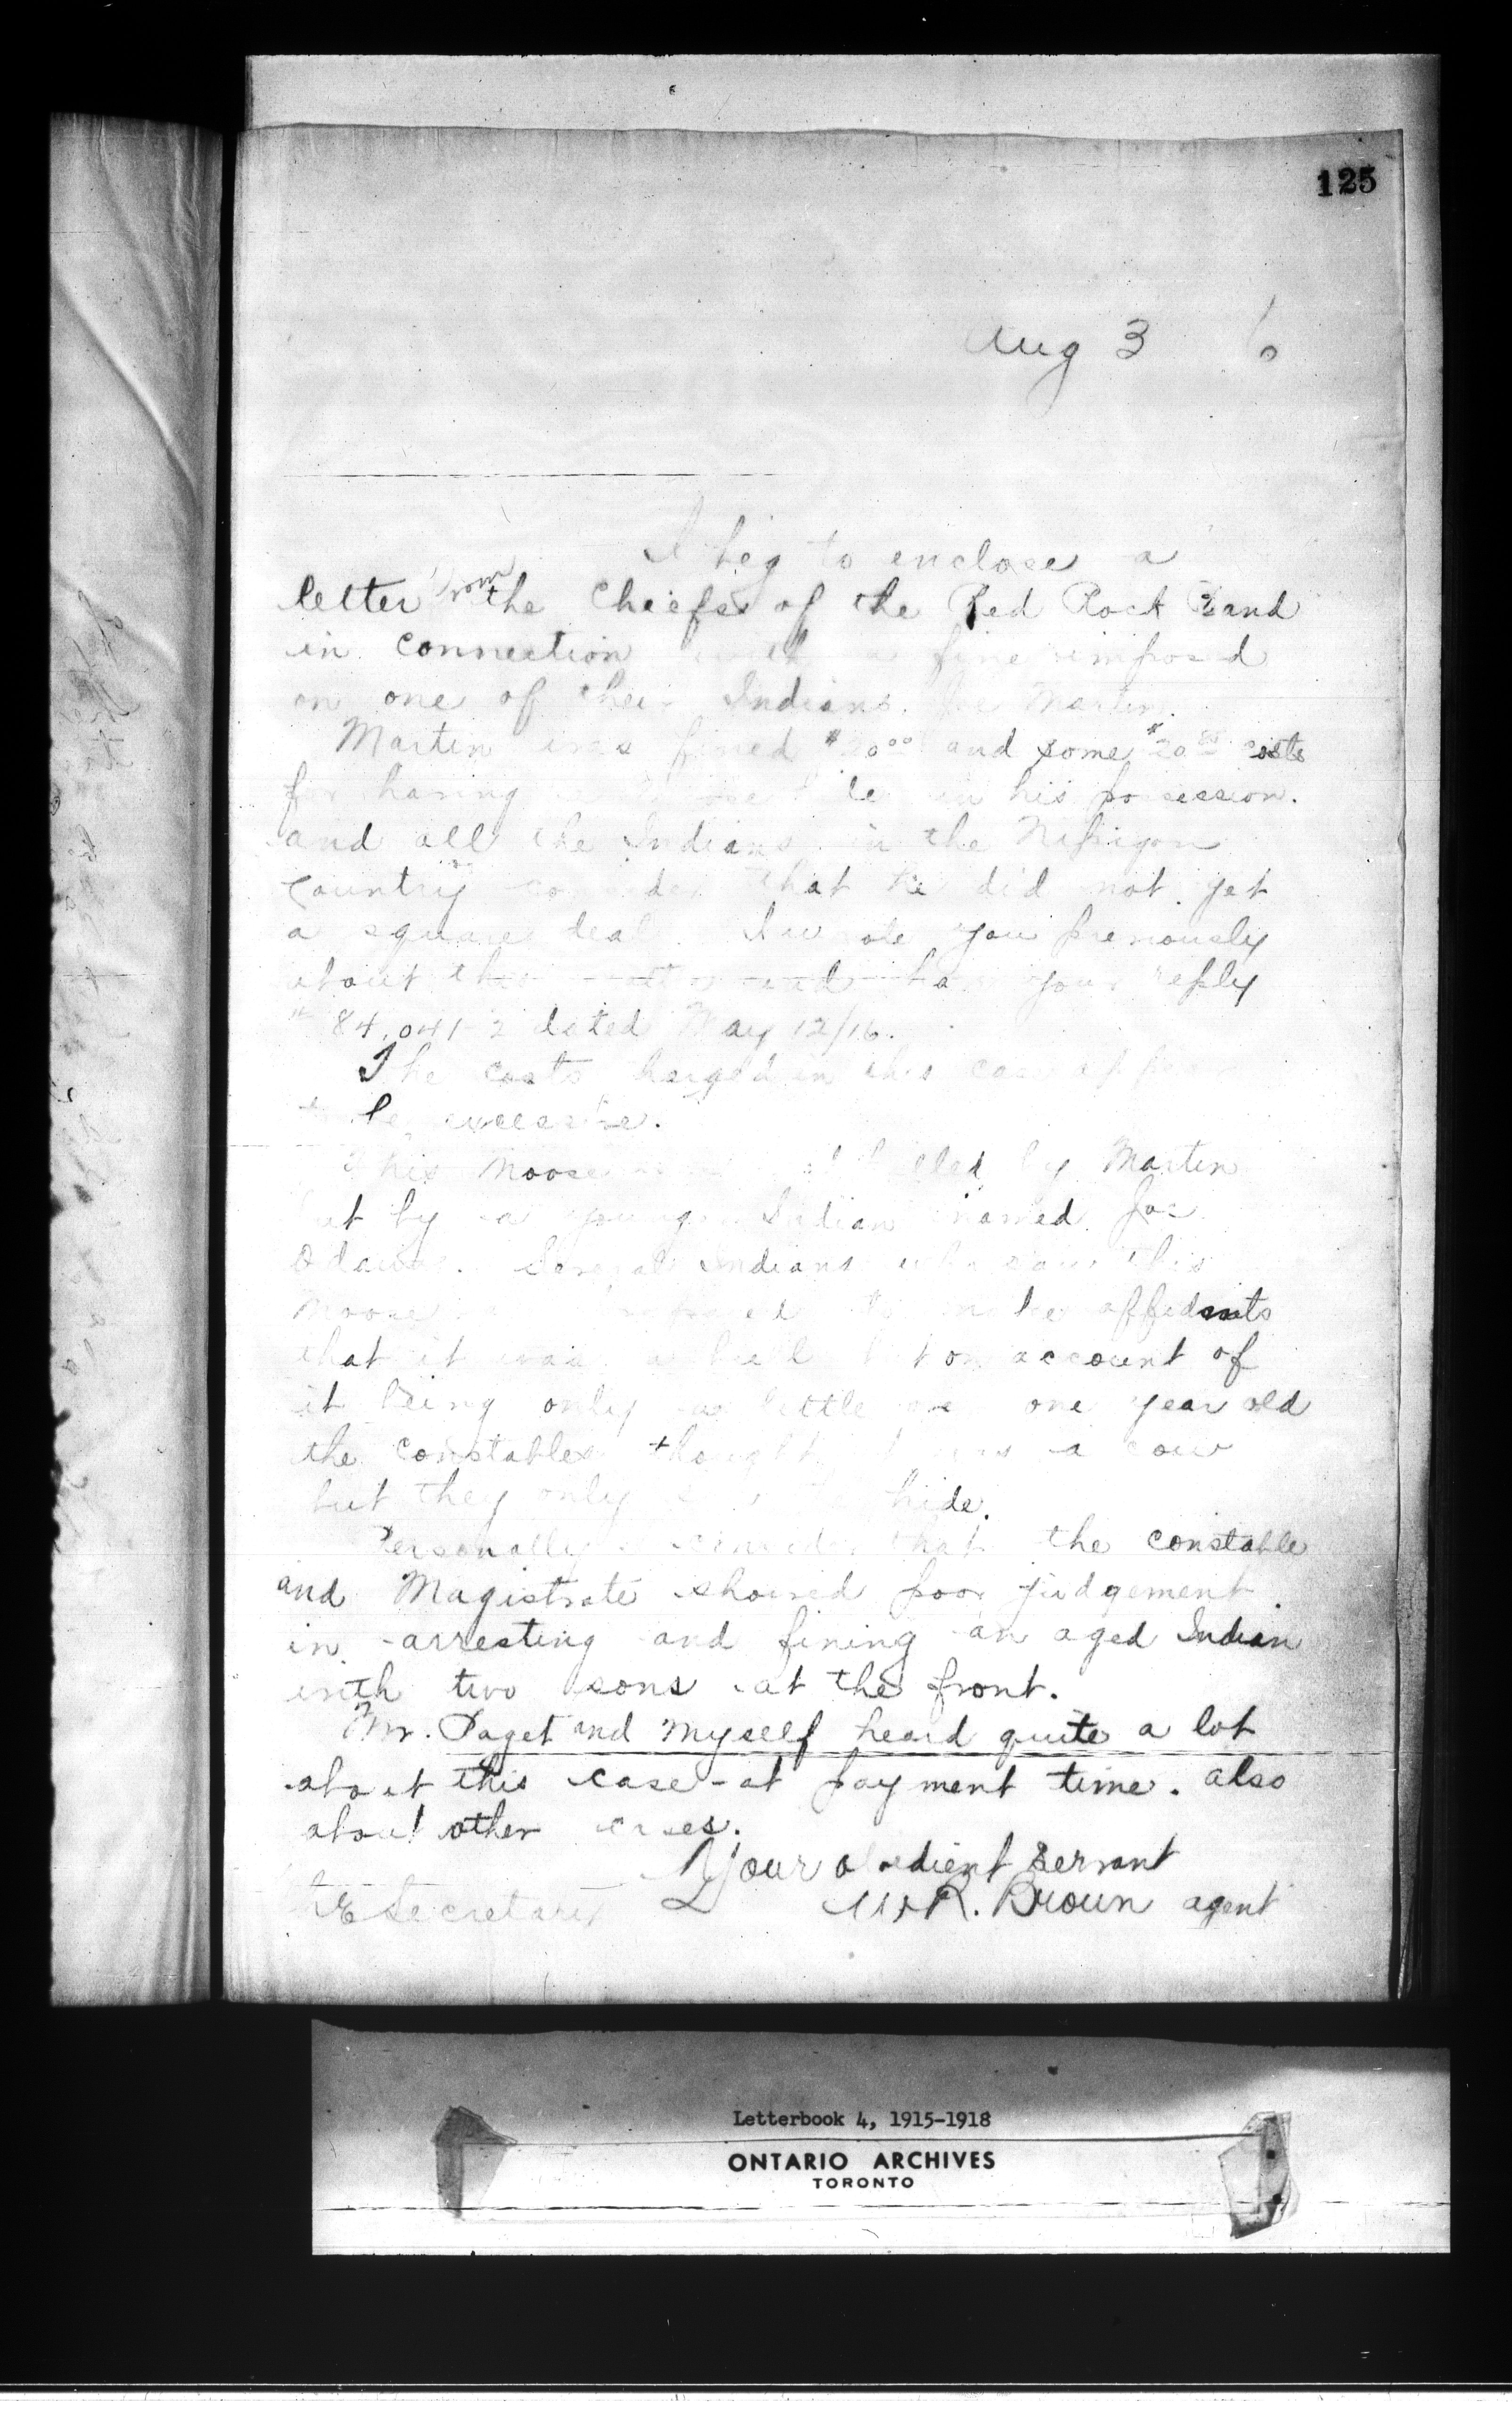 125
Aug 3 6
I beg to enclose a
letter from the Chiefs of the Red Rock Band
in connection with a fine imposed
on one of their Indians. Joe Martin.
Martin was fined $20.00 and some costs
for having in his possession.
and all the Indians in the Nipigon
Country consider that he did not get
a square deal. I wrote you previously
about this and have your reply
84,041-2 dated May 12/16.
The costs charged in this case appear
to be excessive.
This Moose killed by Martin
but by a young Indian named Joe
Several Indians who saw this
Moose to make affidavits
that it was a bull but on account of
it being only a little one year old
the constables thought it was a cow
but they only hide.
Personally I consider that the constable
and Magistrate showed poor judgement
in arresting and fining an aged Indian
with two sons at the front.
Mr. Paget and myself heard quite a lot
about this case at payment time. also
about other cases.
Your obedient servant
W.R. Brown agent
The Secretary
Letterbook 4, 1915-1918
ONTARIO ARCHIVES
TORONTO